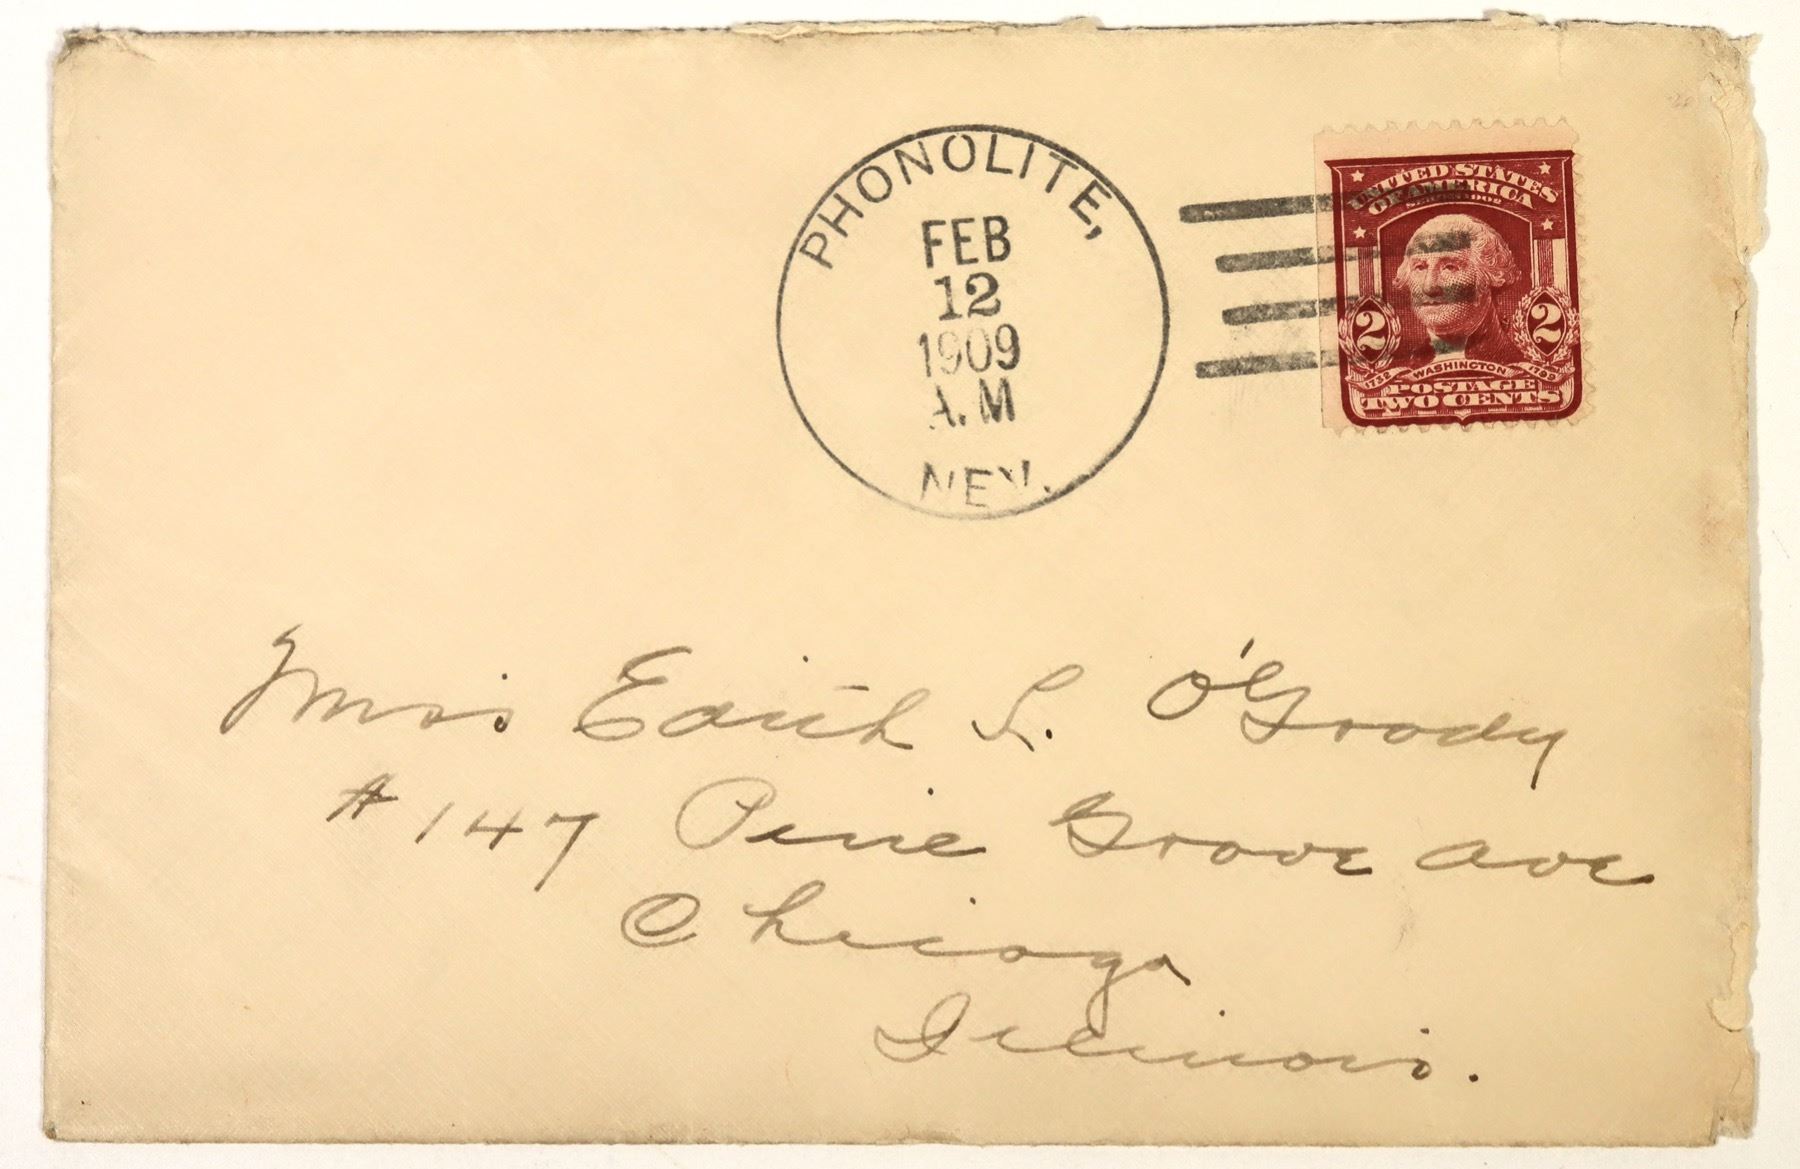 PHONOLITE,
FEB
12
1909
A.M
NEV.
UNITED STATES
OF AMERICA
SERIES 1902
2 2
1732 WASHINGTON 1799
POSTAGE
TWO CENTS
Miss Edith L. O'Grady
# 147 Pine Grove Ave
Chicago
Illinois.